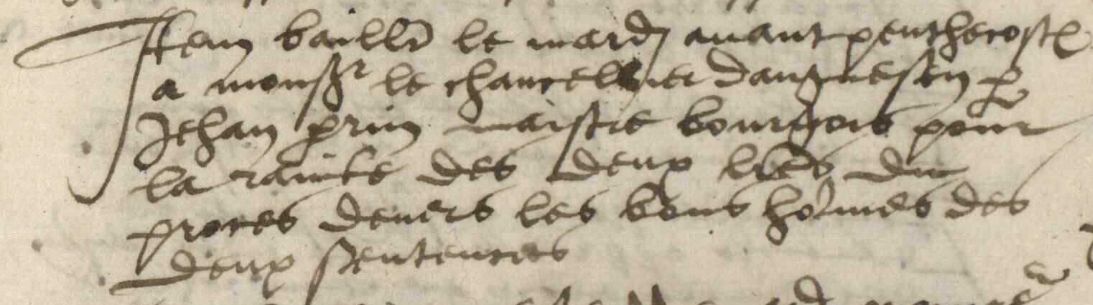 Item baille le mardj auant penthecoste
a monsr le chancellier dangmesten p
Jehan perin maistre bourgois pour
la raincte des deux lres du
proces deuers les bons homes des
deux sentences